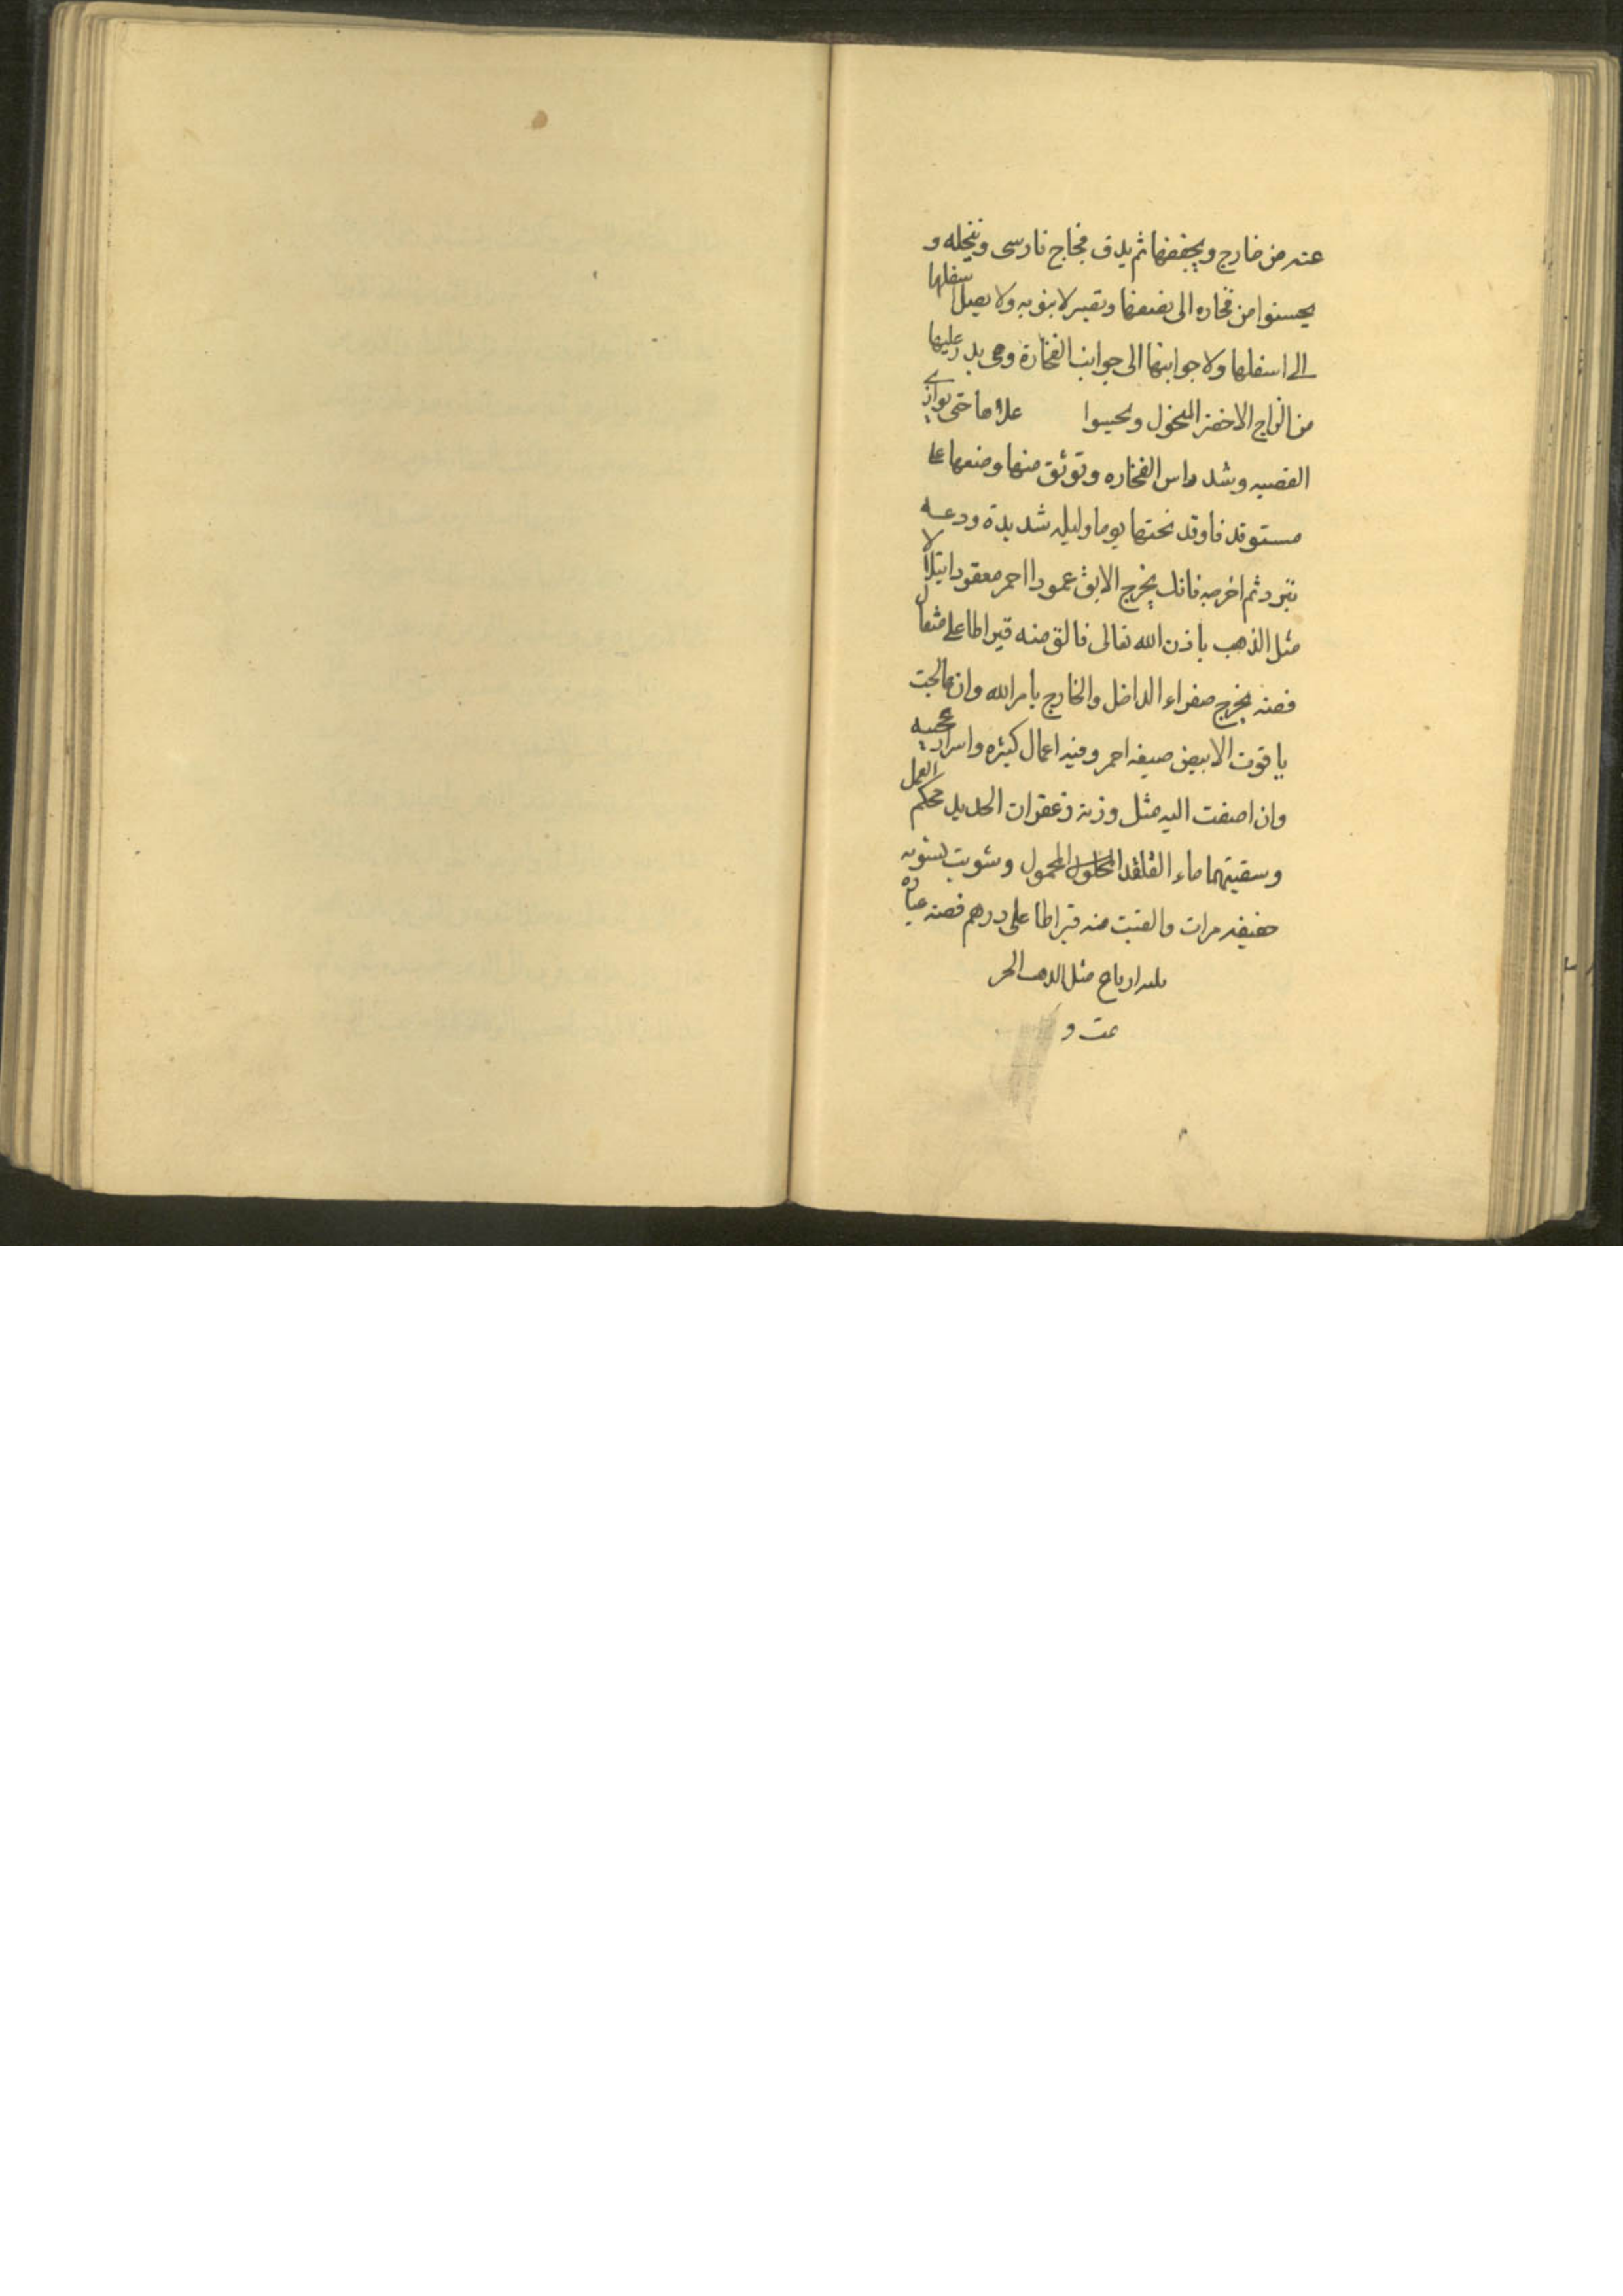 عنه من خارج ويجففها ثم يدق فجاج فارسى وينخله و
يحسنوا من فخاره الى نصفها وتصير لابنوبه ولا يصل اسفلها
الى اسفلها ولا جوانبها الى جوانب الفخارة وهى بدر عليها
من الزاج الاخضر المنخول ويحبسوا علاها حتى توازى
القصبه وشد راس الفخاره وتوثق منها وضعها على
مستوقد فاوقد تحتها يوما وليله شديدة ودعه
تبرد ثم اخرجه فانك يخرج الابق عمودا احمر معقودا يتلألأ
مثل الذهب باذن الله تعالى فالق منه قيراطا على مثقال
فضه يخرج صفراء الداخل والخارج بامر الله وان عالجت
ياقوت الابيض صبغه احمر وفيه اعمال كثيره واسرار عجيبه
وان اضفت اليه مثل وزنه زعفران الحديد محكم العمل
وسقيتهما ماء القلقند المحلول المحمول وشويت بشويه
خفيفه مرات والقيت منه قيراطا على درهم فضه عياره
ارباح مثل الدهب الحر
تمت و